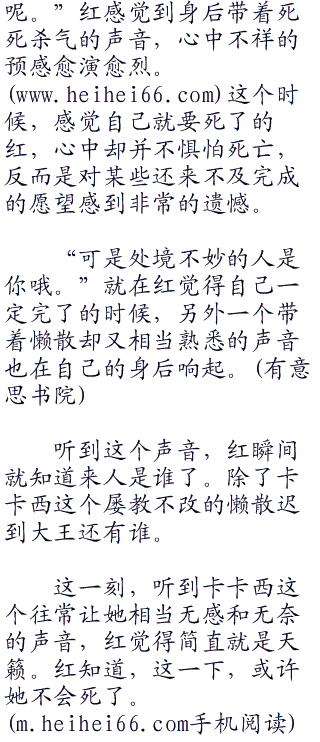 呢。”红感觉到身后带着死
死杀气的声音，心中不祥的
预感愈演愈烈。
(www.heihei66.com)这个时
候，感觉自己就要死了的
红，心中却并不惧怕死亡，
反而是对某些还来不及完成
的愿望感到非常的遗憾。
“可是处境不妙的人是
你哦。”就在红觉得自己一
定完了的时候，另外一个带
着懒散却又相当熟悉的声音
也在自己的身后响起。(有意
思书院)
听到这个声音，红瞬间
就知道来人是谁了。除了卡
卡西这个屡教不改的懒散迟
到大王还有谁。
这一刻，听到卡卡西这
个往常让她相当无感和无奈
的声音，红觉得简直就是天
籁。红知道，这一下，或许
她不会死了。
(m.heihei66.com手机阅读)